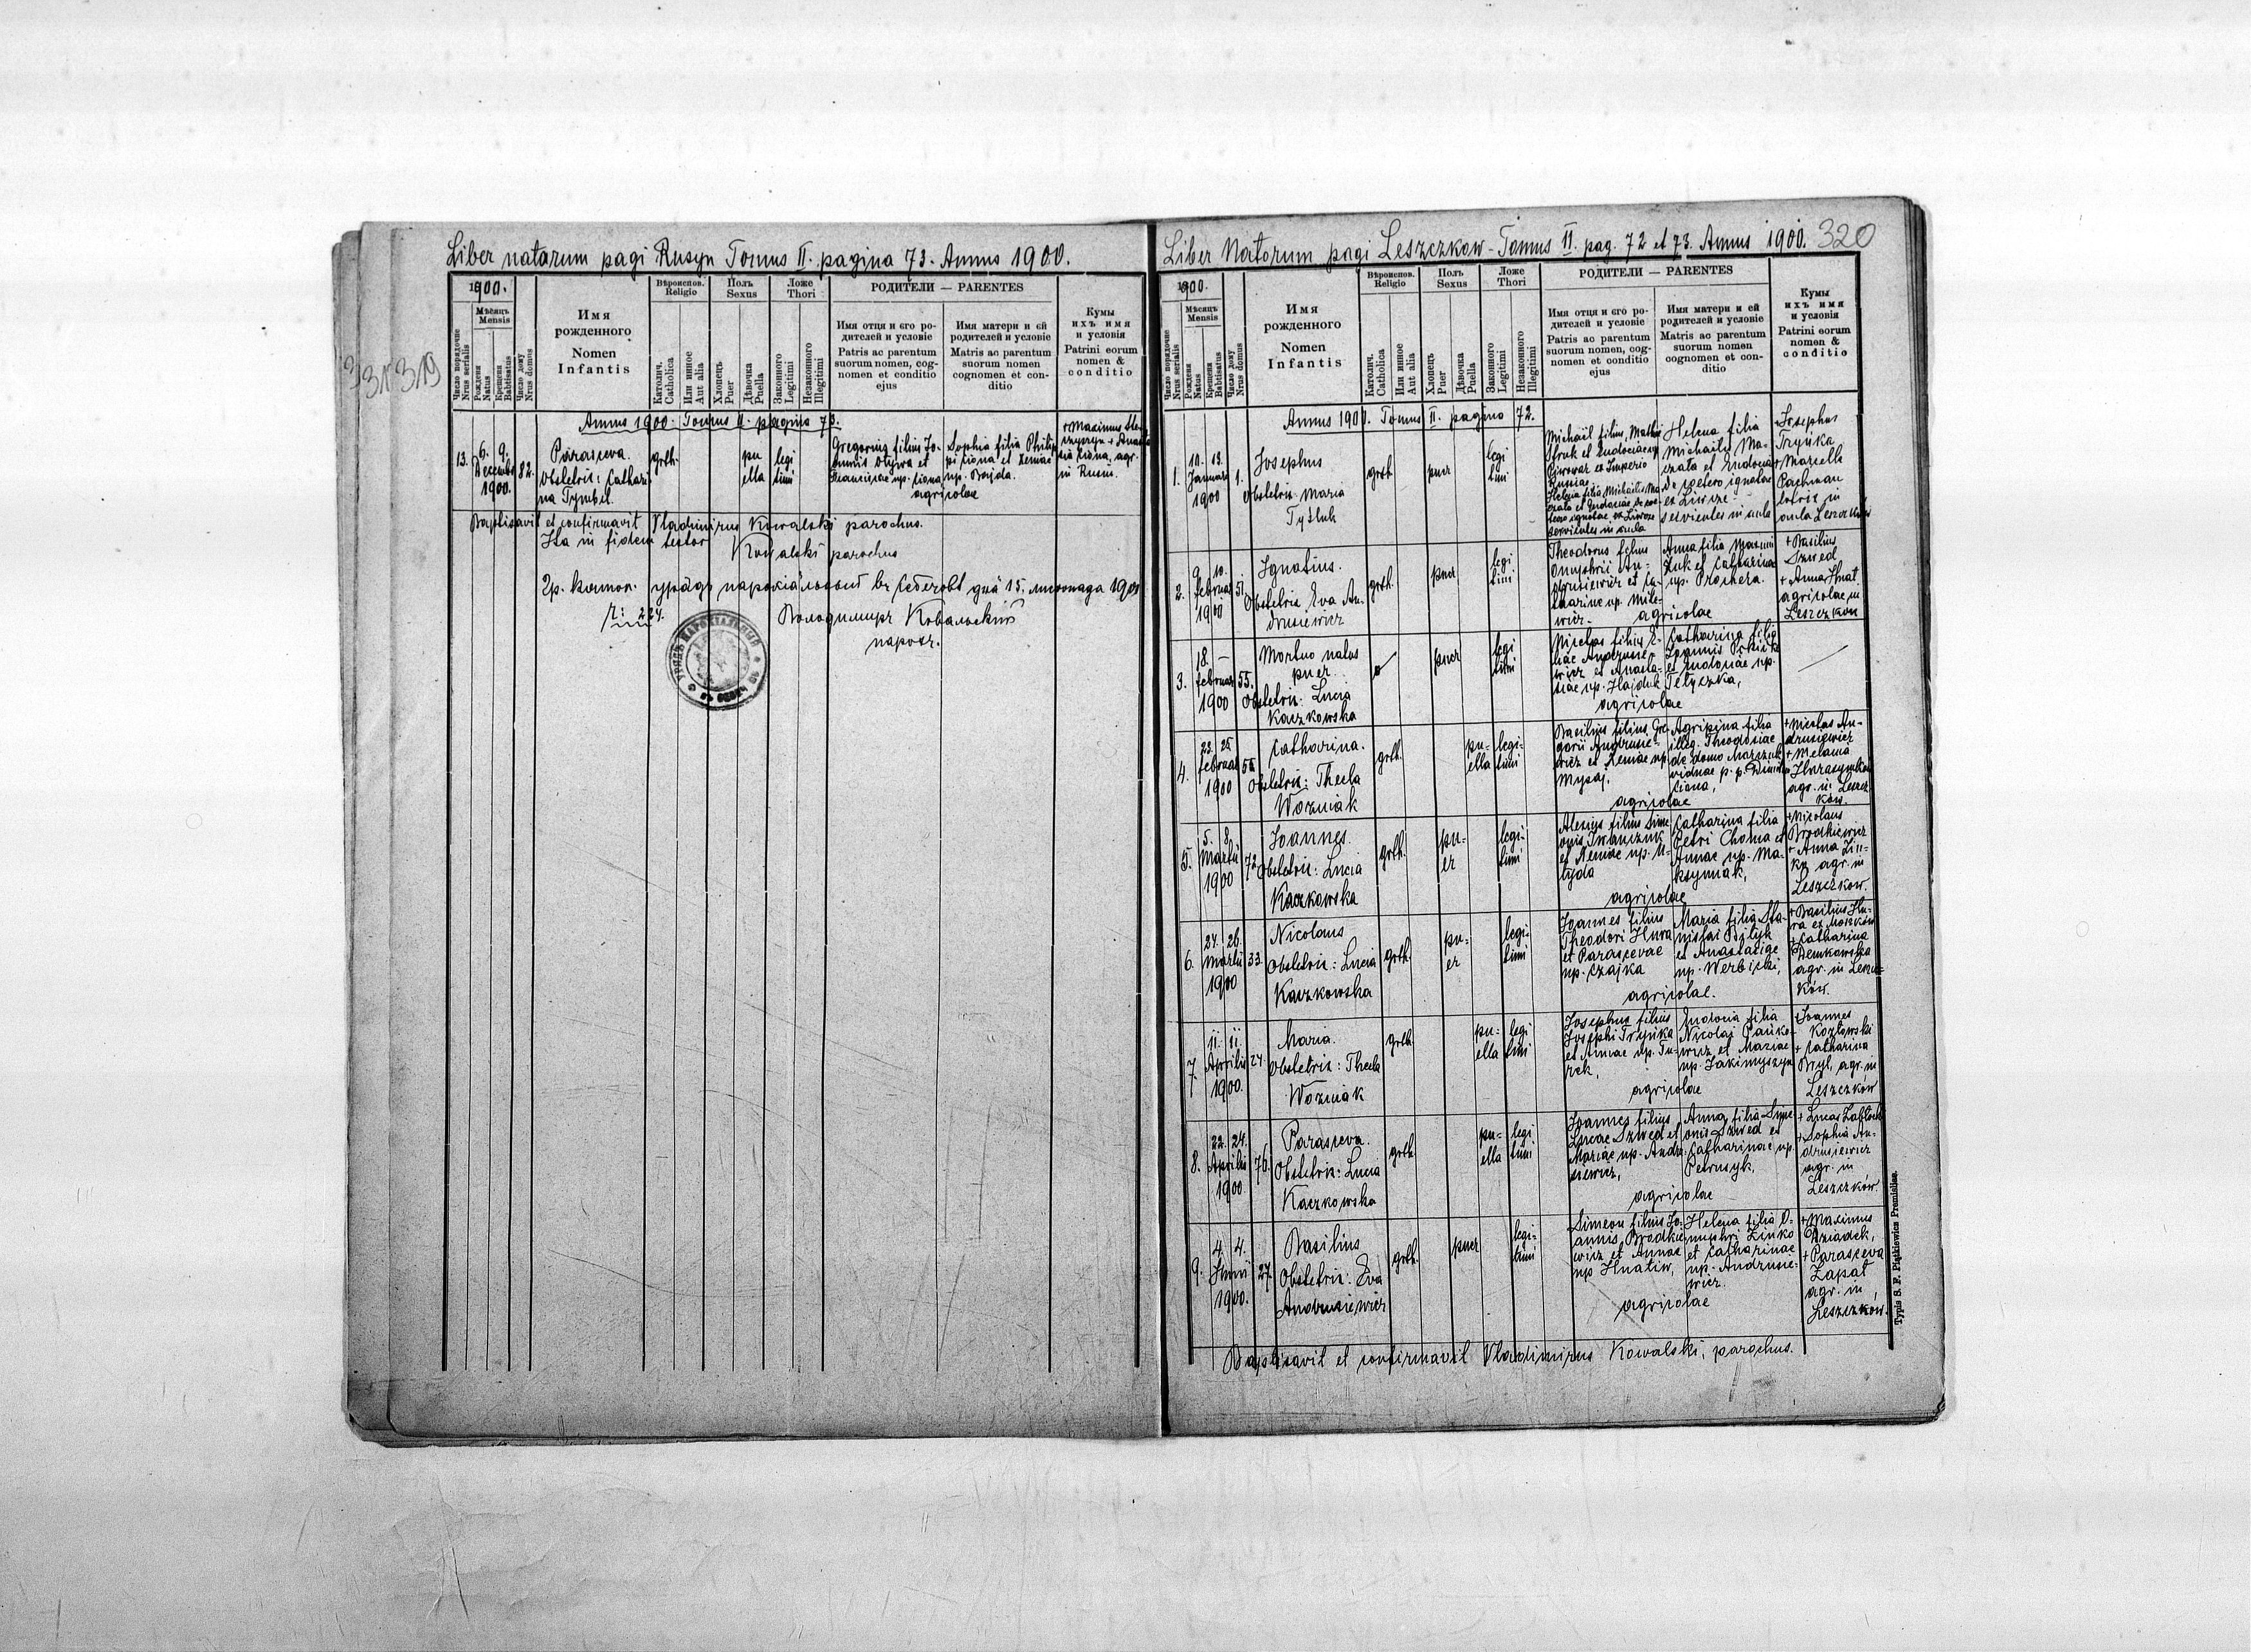 Liber natorum pagi Rusyn Tomus II. pagina 73. Annus 1900.
1900.
Мѣсяць
Mensis
Число порядочне
Nrus serialis
Рожденя
Natus
Крещеня
Babtisatus
Число дому
Nrus domus
Имя
рожденного
Nomen
Infantis
Вѣроиспов.
Religio
Католич.
Catholica
Или инное
Aut alia
Полъ
Sexus
Хлопець
Puer
Дѣвочка
Puella
Ложе
Thori
Законного
Legitimi
Незаконного
Illegitimi
РОДИТЕЛИ — PARENTES
Имя отця и єго ро-
дителей и условіе
Patris ac parentum
suorum nomen, cog-
nomen et conditio
ejus
Имя матери и ей
родителей и условіе
Matris ac parentum
suorum nomen
cognomen et con-
ditio
Кумы
ихъ имя
и условія
Patrini eorum
nomen &
conditio
Annus 1900. Tomus II. pagina 73.
13.
6. 9.
Decembr
1900.
82.
Parasceva.
Obstetrix: Cathari
na Tymbil.
grth.
pu
ella
legi
timi
Gregorius filius Jo-
annis et
Franciscae np.
Sophia filia Philip
pi et Xeniae
np.
agricolae
+ Maximus
agr.
in Rusin.
Baptisavit et confirmavit Vladimirus Kowalski parochus.
Ita in fidem testor
Kowalski parochus
Гр. катол. урядъ парохіальный въ дня 15. листопада 1901
Ч: 224.
Володимиръ Ковальскій
парох.
319
Liber Natorum pagi Leszczkow - Tomus II. pag. 72 et 73. Annus 1900. 320
1900.
Мѣсяць
Mensis
Число порядочне
Nrus serialis
Рожденя
Natus
Крещеня
Babtisatus
Число дому
Nrus domus
Имя
рожденного
Nomen
Infantis
Вѣроиспов.
Religio
Католич.
Catholica
Или инное
Aut alia
Полъ
Sexus
Хлопець
Puer
Дѣвочка
Puella
Ложе
Thori
Законного
Legitimi
Незаконного
Illegitimi
РОДИТЕЛИ — PARENTES
Имя отця и єго ро-
дителей и условіе
Patris ac parentum
suorum nomen, cog-
nomen et conditio
ejus
Имя матери и ей
родителей и условіе
Matris ac parentum
suorum nomen
cognomen et con-
ditio
Кумы
ихъ имя
и условія
Patrini eorum
nomen &
conditio
Annus 1900. Tomus II. pagina 72.
1.
10. 13.
Januar
1900
1.
Josephus
Obstetrix Maria
grth
puer
legi
timi
Michail filius
et
ex Imperio
Russiae.
Helena filia
Michailis
et Eudociae
de cetero ignotae
+ Josephus
Tryńka
+ Marcella
Pachman
in
aula Leszczków
2.
9. 10.
Februar
1900
51.
Ignatius.
Obstetrix Eva An-
drusiewicz
grth.
puer
legi
timi
Theodorus filius
Dmythrii An-
drusiewicz et Ca-
tharinae np. Mile-
wicz.
Anna filia Maximi
Żuk et Catharinae
np. Prochera.
agricolae
+ Basilius
Szwed
+ Anna Hnat.
agricolae in
Leszczkow
3.
18. —
Februar
1900
55.
Mortuo natus
puer.
Obstetrix: Lucia
Kaczkowska
puer
legi
timi
Nicolas filius E-
liae Andrusie-
wicz et Anasta-
siae np. Hajduk
Catharina filia
Joannis
et Eudoxiae np.
Tetyczka,
agricolae
4.
23. 25.
Februar
1900
Catharina.
Obstetrix: Thecla
Woźniak
grth.
pu-
ella
legi-
timi
Basilius filius Gre-
gorii Andrusie-
wicz et Xeniae np.
Mysaj,
Agripina filia
illeg. Theodosiae
de domo
viduae p. p.
agricolae
+ Nicolas An-
drusiewicz
+ Melania
agr. in Leszcz
ków.
5.
5. 8.
Martii
1900
72
Joannes.
Obstetrix: Lucia
Kaczkowska
grth.
pu-
er
legi-
timi
Alexius filius Sime-
onis Iwanczuk
et Xeniae np.
Catharina filia
Petri Choma et
Annae np. Ma-
ksymiak,
agricolae
+ Nicolaus
Brodkiewicz
+ Anna Zin-
ko agr. in
Leszczkow.
6.
24. 26.
Martii
1900
33.
Nicolaus
Obstetrix: Lucia
Kaczkowska
grth.
pu-
er
legi-
timi
Joannes filius
Theodori Hura
et Parascevae
np. Czajka
Maria filia Sta-
nislai Bityk
et Anastasiae
np. Werbicki,
agricolae.
+ Basilius Hu-
ra ex
+ Catharina
Demkowska
agr. in Leszcz-
ków.
7.
11. 11.
Aprilis
1900.
24.
Maria.
Obstetrix: Thecla
Woźniak
grth.
pu-
ella
legi
timi
Josephus filius
Josephi Tryńka
et Annae np. Tu-
rek,
Eudocia filia
Nicolai Pańko-
wicz et Mariae
np. Jakimyszyn
agricolae
+ Joannes
Kozłowski
+ Catharina
Bryl, agr. in
Leszczków
8.
22. 24.
Aprilis
1900
76.
Parasceva.
Obstetrix: Lucia
Kaczkowska
grth
pu-
ella
legi
timi
Joannes filius
Lucae Szwed et
Mariae np. Andru-
siewicz,
Anna filia Sime-
onis Szwed et
Catharinae np.
Petrusyk,
agricolae
+ Lucas
+ Sophia An-
drusiewicz
agr. in
Leszczków.
9.
4. 4.
Junii
1900.
27.
Basilius
Obstetrix: Eva
Andrusiewicz
grth.
puer
legi-
timi
Simeon filius Jo-
annis Brodkie-
wicz et Annae
np Hnatiw,
Helena filia D-
mythri Zinko
et Catharinae
np. Andrusie-
wicz.
agricolae
+ Maximus
Dziadek,
+ Parasceva
Zapał
agr. in
Leszczków.
Baptisavit et confirmavit Vladimirus Kowalski, parochus.
Typis S. F. Piątkiewicz Premisliae.